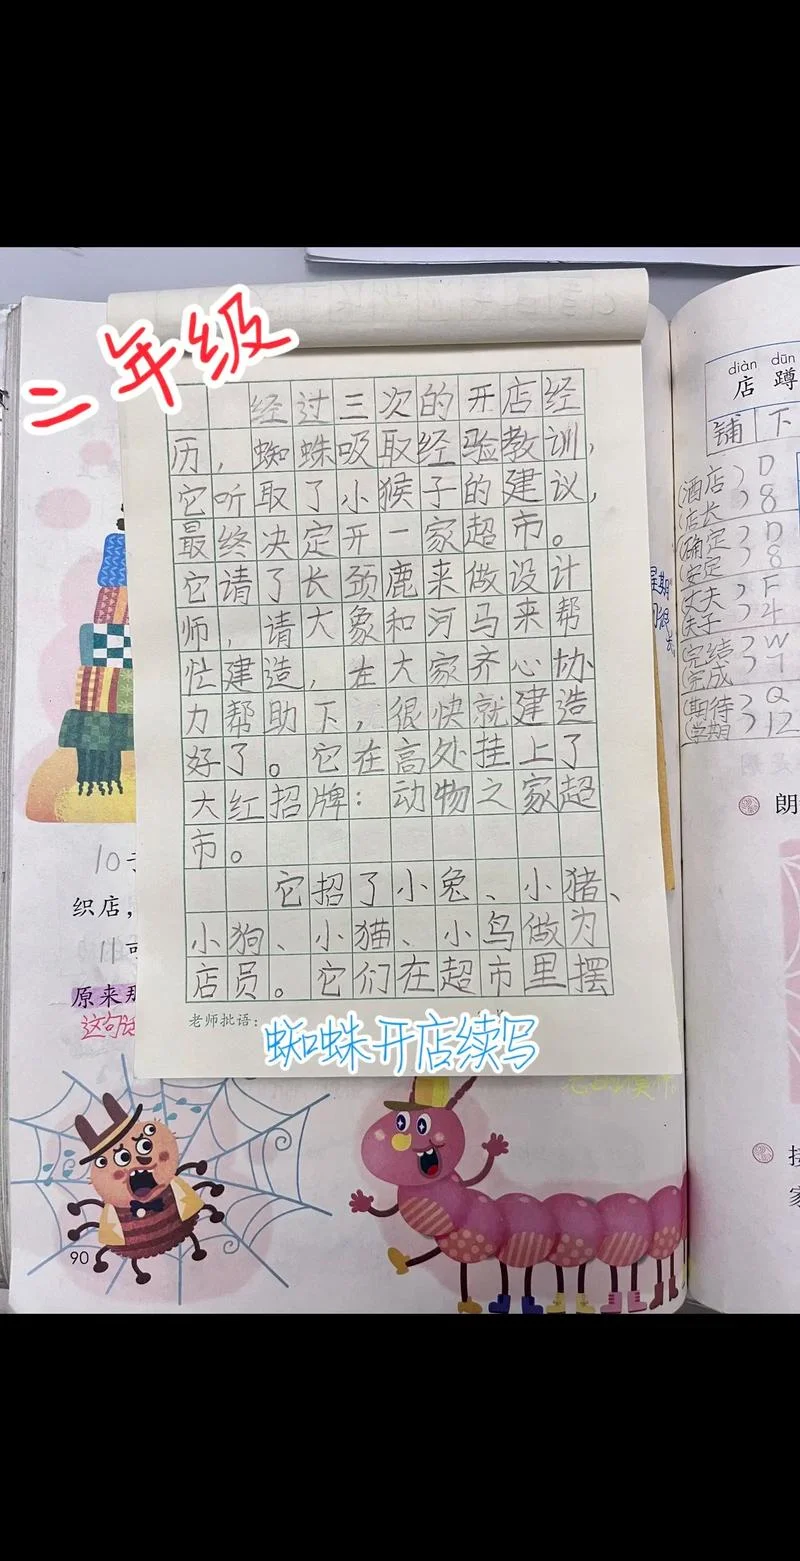 二年级
经过三次的开店经
历，蜘蛛吸取经验教训，
它听取了小猴子的建议，
最终决定开一家超市。
它请了长颈鹿来做设计
师，请大象和河马来帮
忙建造，在大家齐心协
力帮助下，很快就建造
好了。它在高处挂上了
大红招牌：动物之家超
市。
它招了小兔、小猪、
小狗、小猫、小鸟做为
店员。它们在超市里摆
老师批语：
蜘蛛开店续写
10
织店，
11可
原来那
这句话
90
diàn dūn
店 蹲
铺 下
(酒店) D
(店长) 8
(确定) D
(安定) 8
(丈夫) F
夫子) 4
(完结) W
完成) 7
(期待) Q
学期) 12
星期
朗
家